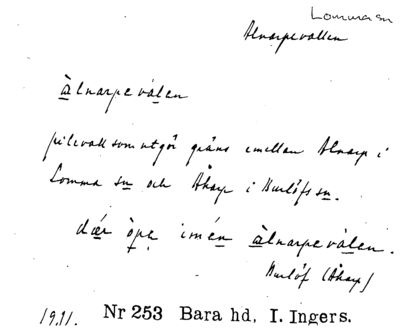 Lomma sn
Alnarpsvallen
àlnarpeválen
pilevall som utgör gräns emellan Alnarp i
Lomma sn och Åkarp i Burlöfs sn.
dær òpe i mén àlnarpevàlen.
Burlöf (Åkarp)
1911. Nr 253 Bara hd, I. Ingers.